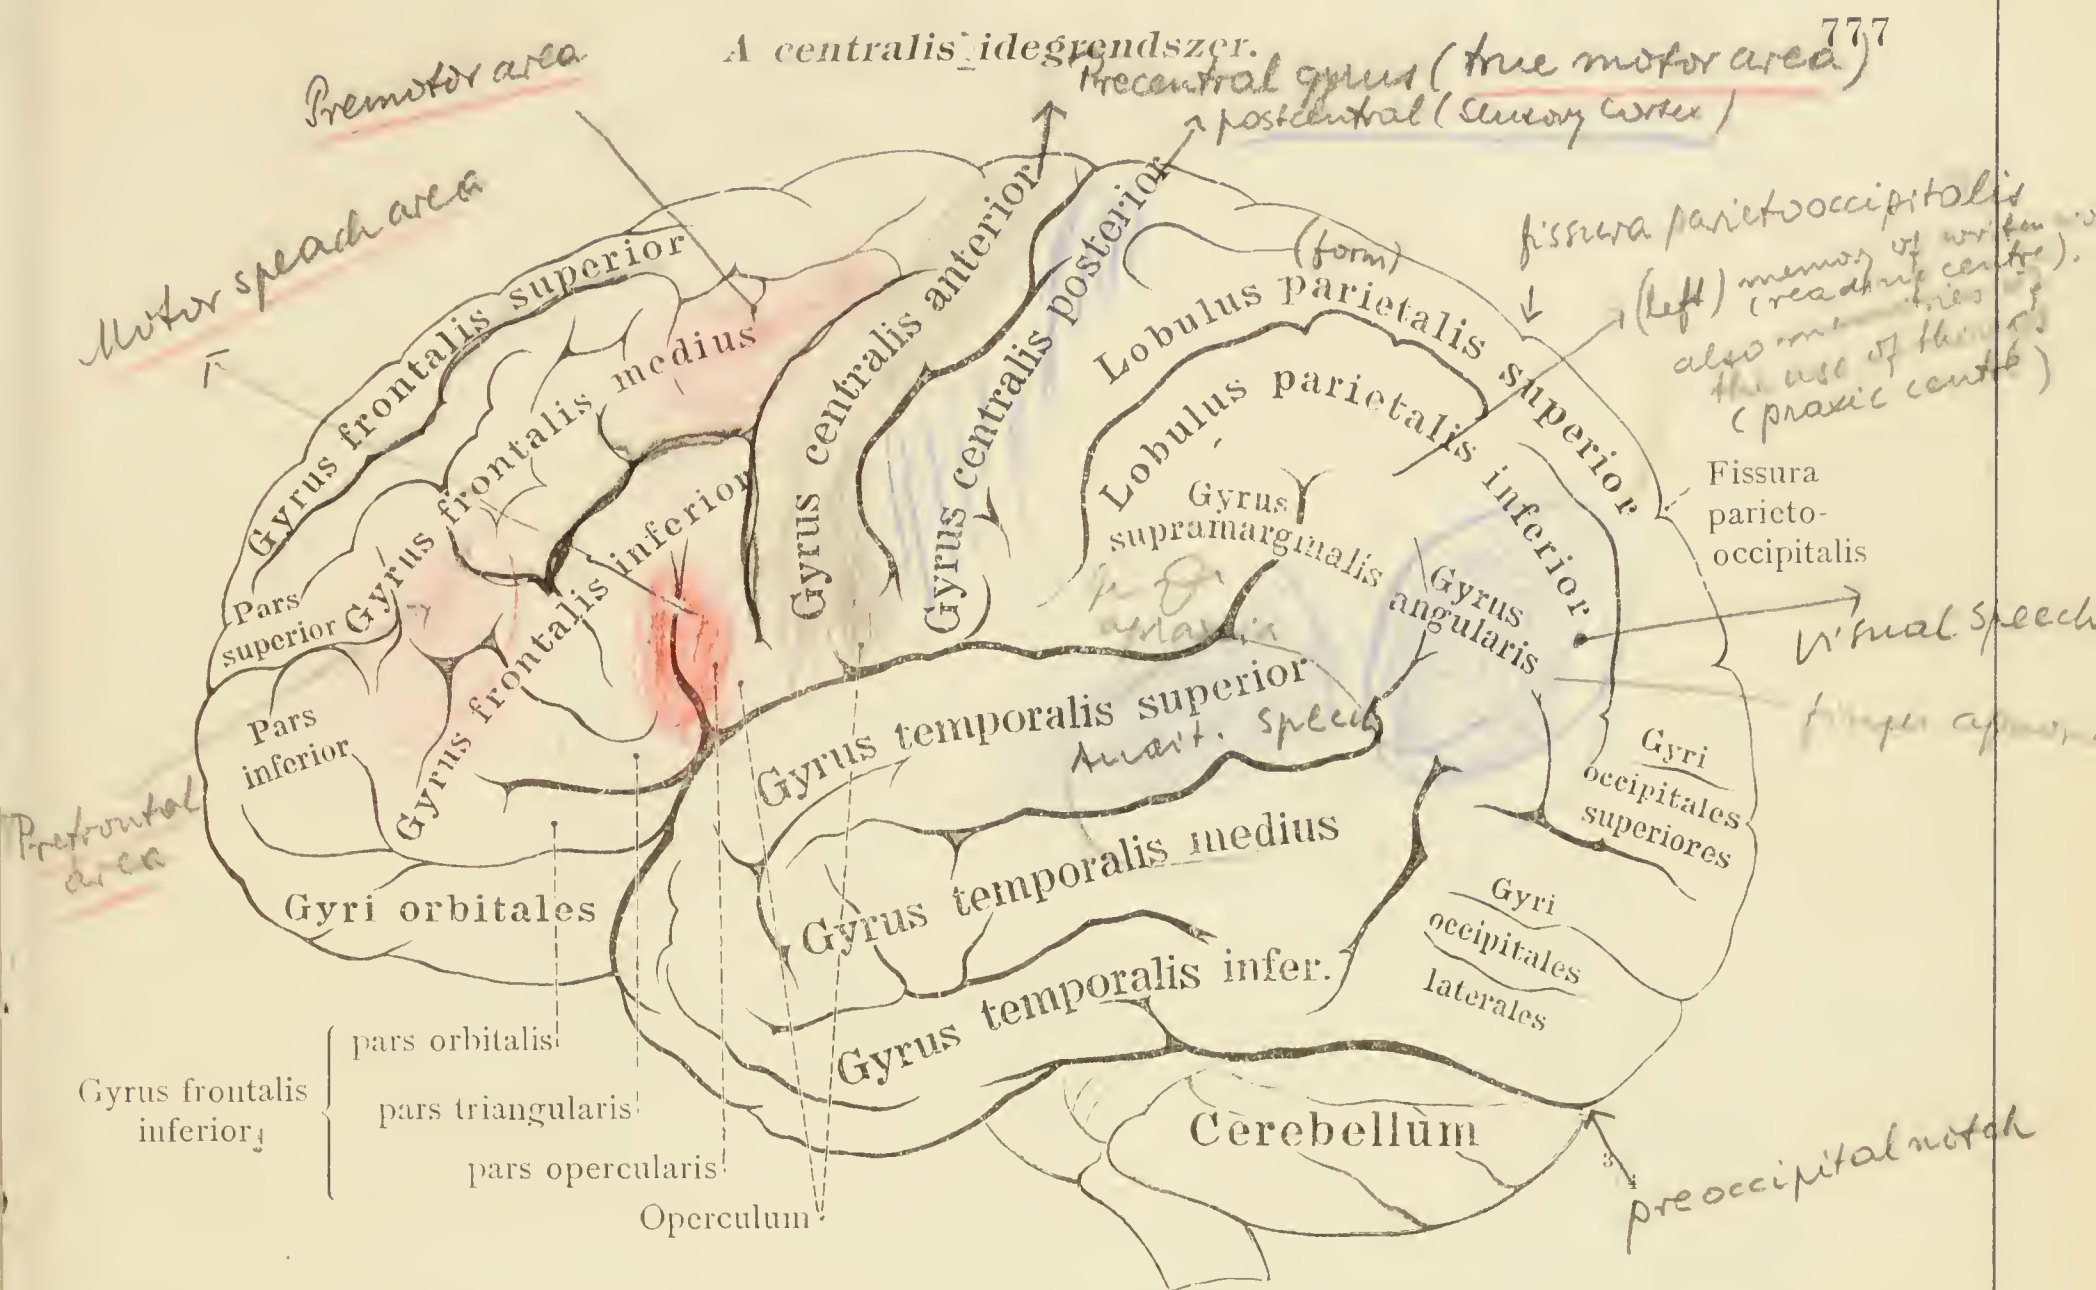 777
A centralis idegrendszer.
Premotor area
Precentral gyrus (true motor area)
postcentral (sensory cortex)
Motor speach area
fissura parietooccipitalis
(left) memory of writen
(reading centre).
also memories of
the use of things
(praxic centre)
(form)
Gyrus frontalis superior
Gyrus frontalis medius
Gyrus frontalis inferior
Gyrus centralis anterior
Gyrus centralis posterior
Lobulus parietalis superior
Lobulus parietalis inferior
Gyrus
supramarginalis
Gyrus
angularis
Fissura
parieto-
occipitalis
visual speech
Pars
superior
Pars
inferior
Gyrus frontalis inferior
Prefrontal
area
Gyrus temporalis superior
Speech
Gyrus temporalis medius
Gyrus temporalis infer.
Gyri
occipitales
superiores
Gyri
occipitales
laterales
Gyri orbitales
Gyrus frontalis
inferior
pars orbitalis
pars triangularis
pars opercularis
Operculum
Cerebellum
preoccipital notch